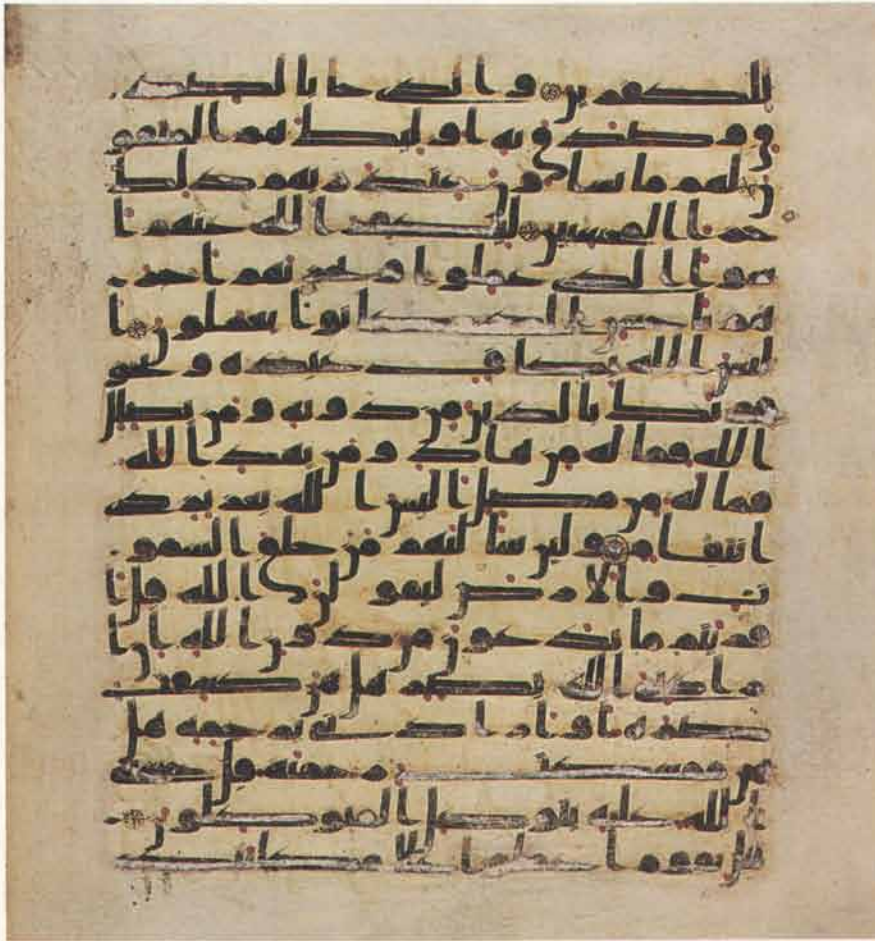 للكفرين والذي جا بالصد
ق وصدق به اوليك هم المتقو
ن لهم ما يشاون عند ربهم ذلك
جزا المحسنين ليكفر الله عنهم ا
سوا الذي عملوا ويجزيهم اجر
هم باحسن الذي كانوا يعملون ا
ليس الله بكاف عبده ويخو
فونك بالذين من دونه ومن يضلل
الله فما له من هاد ومن يهد الله
فما له من مضل اليس الله بعزيز ذي
انتقام ولين سالتهم من خلق السمو
ت والارض ليقولن الله قل ا
فريتم ما تدعون من دون الله ان ا
رادني الله بضر هل هن كشفت
ضره او ارادني برحمة هل
هن ممسكت رحمته قل حسبي
الله عليه يتوكل المتوكلون
قل يقوم اعملوا على مكانتكم